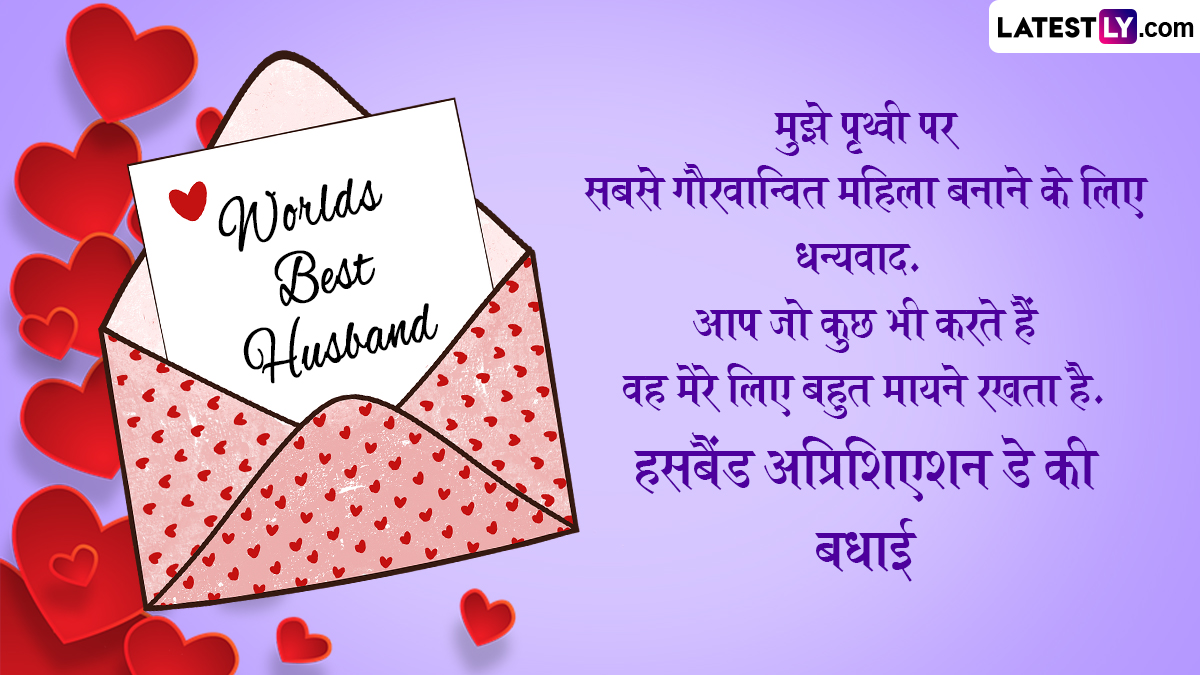 LATESTLY.com
Worlds
Best
Husband
मुझे पृथ्वी पर
सबसे गौरवान्वित महिला बनाने के लिए
धन्यवाद.
आप जो कुछ भी करते हैं
वह मेरे लिए बहुत मायने रखता है.
हसबैंड अप्रिशिएशन डे की
बधाई